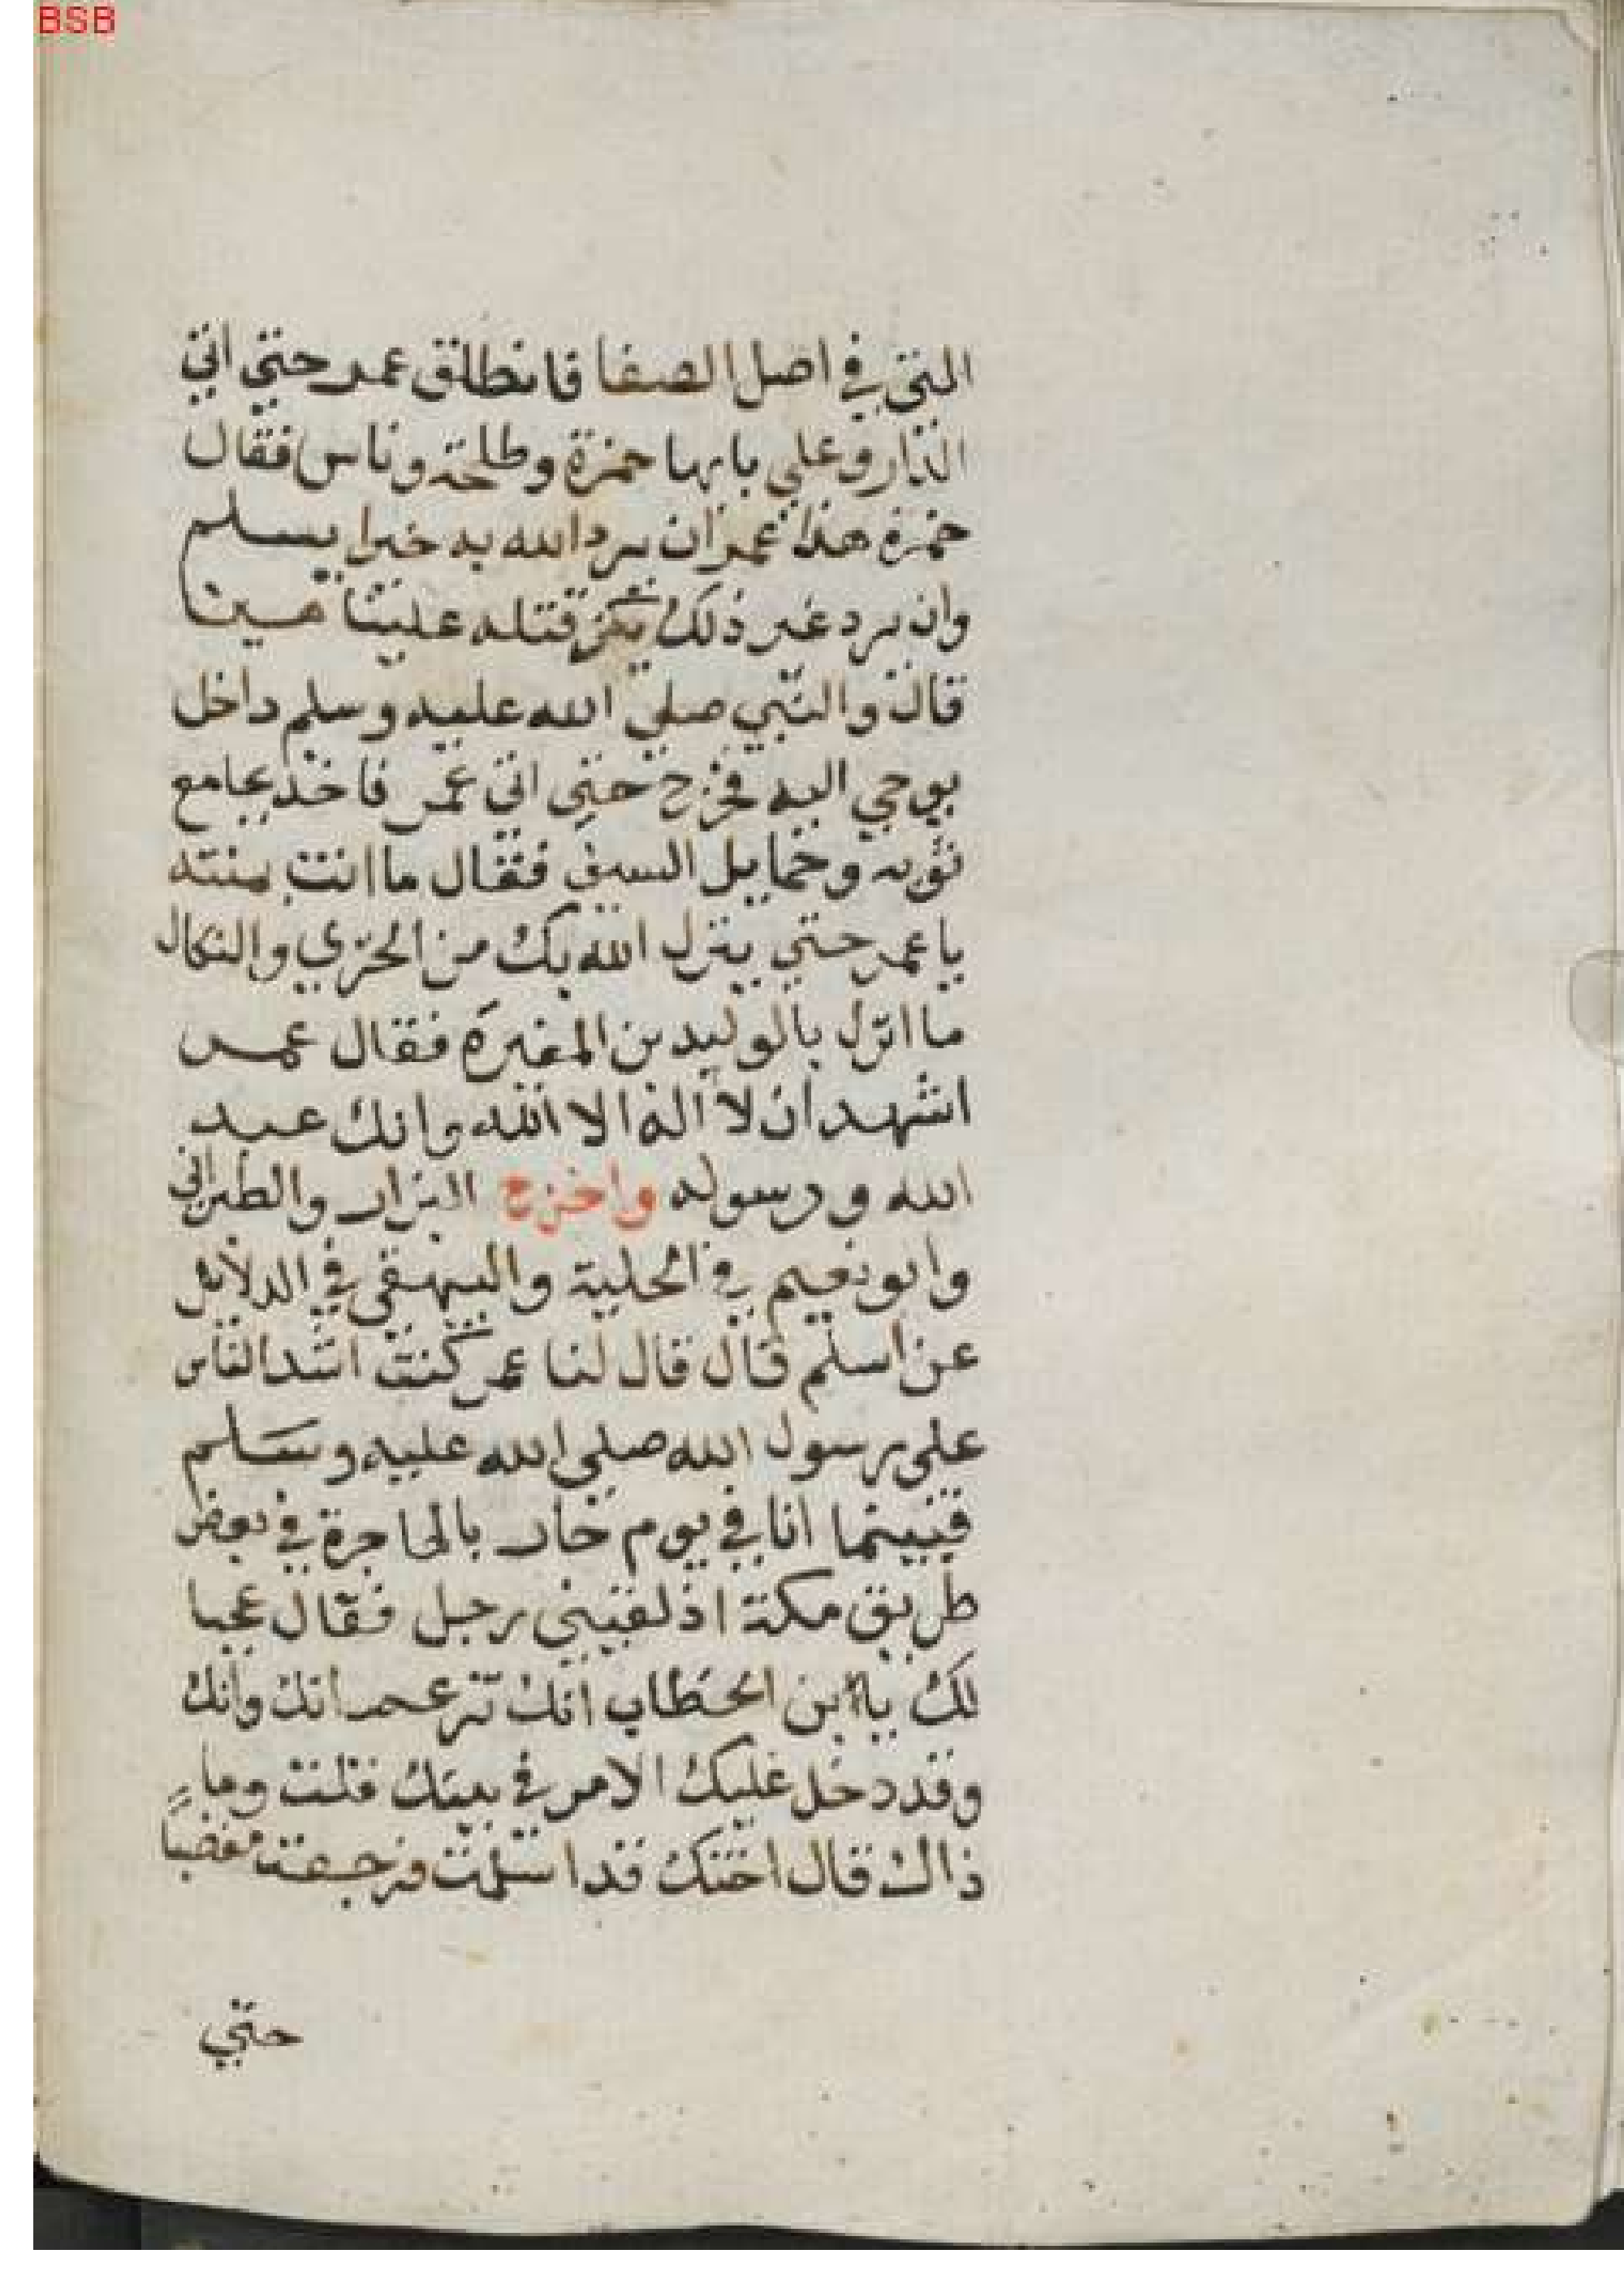 BSB
التي في اصل الصفا فانطلق عمر حتي اتي
الدار وعلي بابها حمزة وطلحة وناس فقال
حمزة هذا عمر ان يرد الله به خيرا يسلم
وان يرد غير ذلك يكن قتله علينا هينا
قال والنبي صلي الله عليه وسلم داخل
يوحي اليه فخرج حتي اتي عمر فاخذ بمجامع
ثوبه وحمايل السيف فقال ما انت بمنته
يا عمر حتي ينزل الله بك من الخزي والنكال
ما انزل بالوليد بن المغيرة فقال عمر
اشهد ان لا اله الا الله وانك عبد
الله ورسوله واخرج البزار والطبراني
وابو نعيم في الحلية والبيهقي في الدلائل
عن اسلم قال قال لنا عمر كنت اشد الناس
علي رسول الله صلي الله عليه وسلم
فبينما انا في يوم حار بالهاجرة في بعض
طريق مكة اذ لقيني رجل فقال عجبا
لك يا ابن الخطاب انك تزعم انك وانك
وقد دخل عليك الامر في بيتك قلت وما
ذاك قال اختك قد اسلمت فرجعت مغضبا
حتي